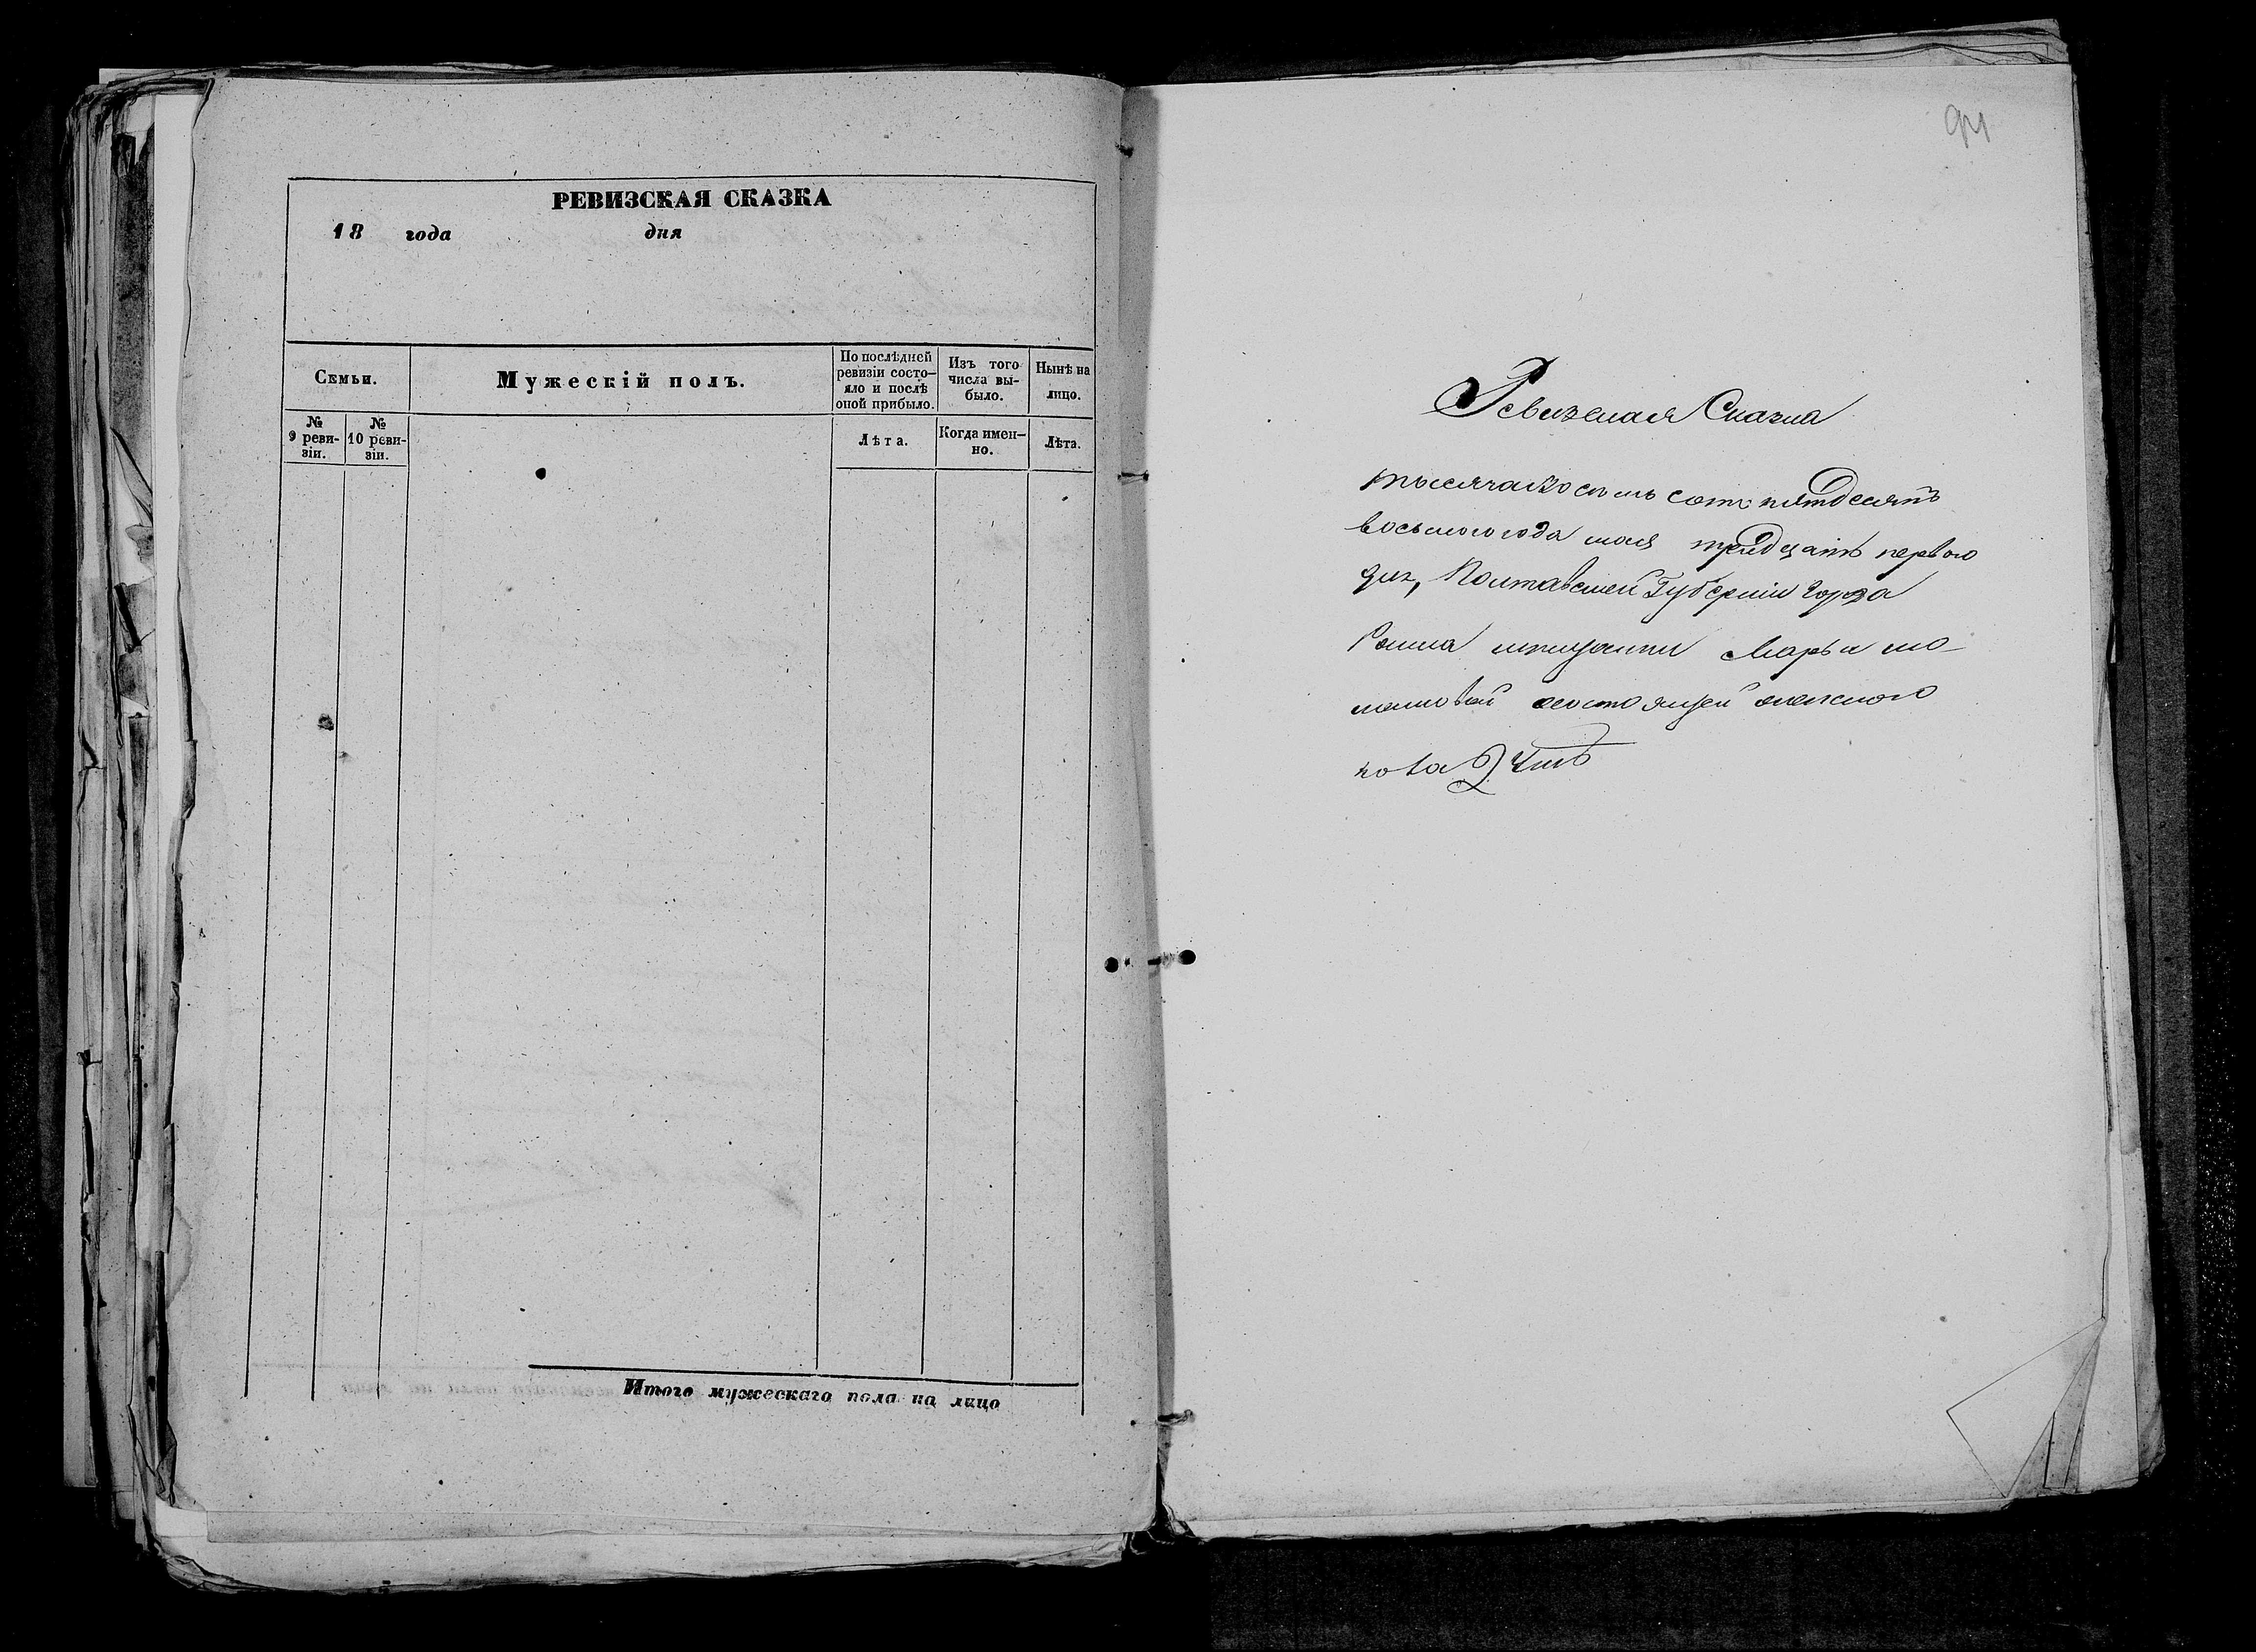 РЕВИЗСКАЯ СКАЗКА
18 года дня
Семьи.
Мужескій полъ.
По послѣдней
ревизіи состо-
яло и послѣ
оной прибыло.
Изъ того
числа вы-
было.
Нынѣ на
лицо.
№
9 реви-
зіи.
№
10 реви-
зіи.
Лѣта.
Когда имен-
но.
Лѣта.
Итого мужескаго пола на лицо
Ревизская Сказка
тысяча восемь сотъ пятдесятъ
восьмого года мая тридцать первого
дня, Полтавской Губерніи города
Ромна мещанки Марьи
состоящей женского
пола 2 душъ